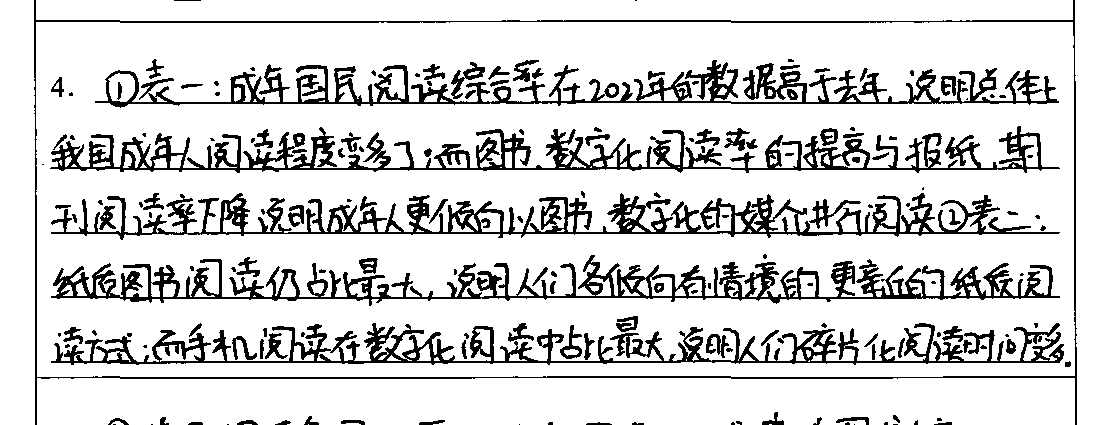 4. ①表一:成年国民阅读综合率在2022年的数据高于去年,说明总体上
我国成年人阅读程度变多了;而图书、数字化阅读率的提高与报纸、期
刊阅读率下降说明成年人更倾向以图书、数字化的媒介进行阅读②表二:
纸质图书阅读仍占比最大,说明人们各倾向有情境的、更亲近的纸质阅
读方式;而手机阅读在数字化阅读中占比最大,说明人们碎片化阅读时间变多.